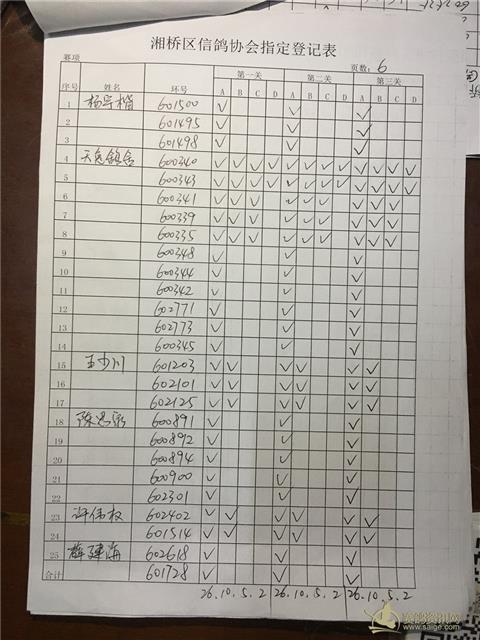 湘桥区信鸽协会指定登记表
赛项 页数: 6
序号 姓名 环号 第一关 第二关 第三关
A B C D A B C D A B C D
1 601500 ✓ ✓ ✓
2 601495 ✓ ✓ ✓
3 601498 ✓ ✓ ✓
4 600340 ✓ ✓ ✓ ✓ ✓ ✓ ✓ ✓ ✓ ✓ ✓ ✓
5 600343 ✓ ✓ ✓ ✓ ✓ ✓ ✓ ✓ ✓ ✓ ✓ ✓
6 600341 ✓ ✓ ✓ ✓ ✓ ✓ ✓ ✓ ✓
7 600339 ✓ ✓ ✓ ✓ ✓ ✓ ✓ ✓ ✓
8 600335 ✓ ✓ ✓ ✓ ✓ ✓ ✓ ✓ ✓
9 600348 ✓ ✓ ✓
10 600344 ✓ ✓ ✓
11 600342 ✓ ✓ ✓
12 602771 ✓ ✓ ✓
13 602773 ✓ ✓ ✓
14 600345 ✓ ✓ ✓
15 王少川 601203 ✓ ✓ ✓ ✓ ✓ ✓
16 602101 ✓ ✓ ✓ ✓ ✓ ✓
17 602125 ✓ ✓ ✓ ✓ ✓ ✓
18 600891 ✓ ✓ ✓
19 600892 ✓ ✓ ✓
20 600894 ✓ ✓ ✓
21 600900 ✓ ✓ ✓
22 602301 ✓ ✓ ✓
23 许伟权 602402 ✓ ✓ ✓ ✓ ✓ ✓
24 601514 ✓ ✓ ✓ ✓ ✓ ✓
25 薛建海 602618 ✓ ✓ ✓
合计 601728 ✓ ✓ ✓
26.10.5.2 26.10.5.2 26.10.5.2
赛鸽资讯网
www.saige.com